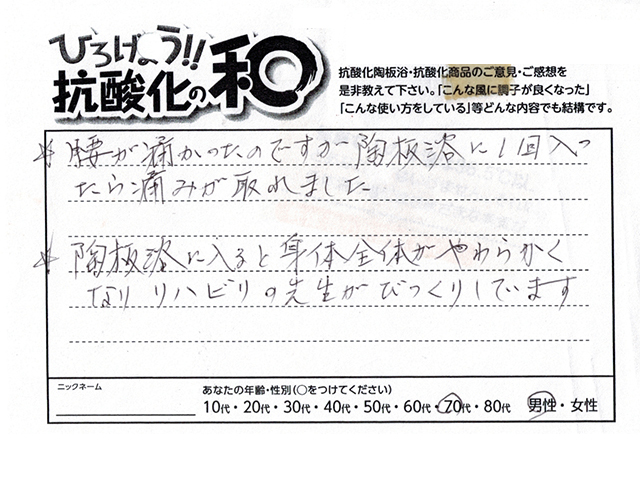 ひろげよう!!
抗酸化の和
抗酸化陶板浴・抗酸化商品のご意見・ご感想を
是非教えて下さい。「こんな風に調子が良くなった」
「こんな使い方をしている」等どんな内容でも結構です。
* 腰が痛かったのですが陶板浴に1回入っ
たら痛みが取れました
* 陶板浴に入ると身体全体がやわらかく
なりリハビリの先生がびっくりしています
ニックネーム
あなたの年齢・性別(○をつけてください)
10代・20代・30代・40代・50代・60代・70代・80代 男性・女性